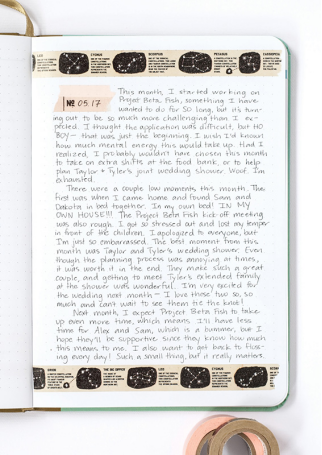 LEO CYGNUS SCORPIUS PEGASUS CASSIOPEIA
Nº 05.17
This month, I started working on
Project Beta Fish, something I have
wanted to do for SO long, but it's turn-
ing out to be so much more challenging than I ex-
pected. I thought the application was difficult, but HO
BOY - that was just the beginning. I wish I'd known
how much mental energy this would take up. Had I
realized, I probably wouldn't have chosen this month
to take on extra shifts at the food bank, or to help
plan Taylor + Tyler's joint wedding shower. Woof. I'm
exhausted.
There were a couple low moments this month. The
first was when I came home and found Sam and
Dakota in bed together. In my own bed! IN MY
OWN HOUSE!!! The Project Beta Fish kick-off meeting
was also rough. I got so stressed out and lost my temper
in front of the children. I apologized to everyone, but
I'm just so embarrassed. The best moment from this
month was Taylor and Tyler's wedding shower. Even
though the planning process was annoying at times,
it was worth it in the end. They make such a great
couple, and getting to meet Tyler's extended family
at the shower was wonderful. I'm very excited for
the wedding next month - I love those two so, so
much and can't wait to see them tie the knot!
Next month, I expect Project Beta Fish to take
up even more time, which means I'll have less
time for Alex and Sam, which is a bummer, but I
hope they'll be supportive since they know how much
this means to me. I also want to get back to floss-
ing every day! Such a small thing, but it really matters.
ORION THE BIG DIPPER LEO CYGNUS